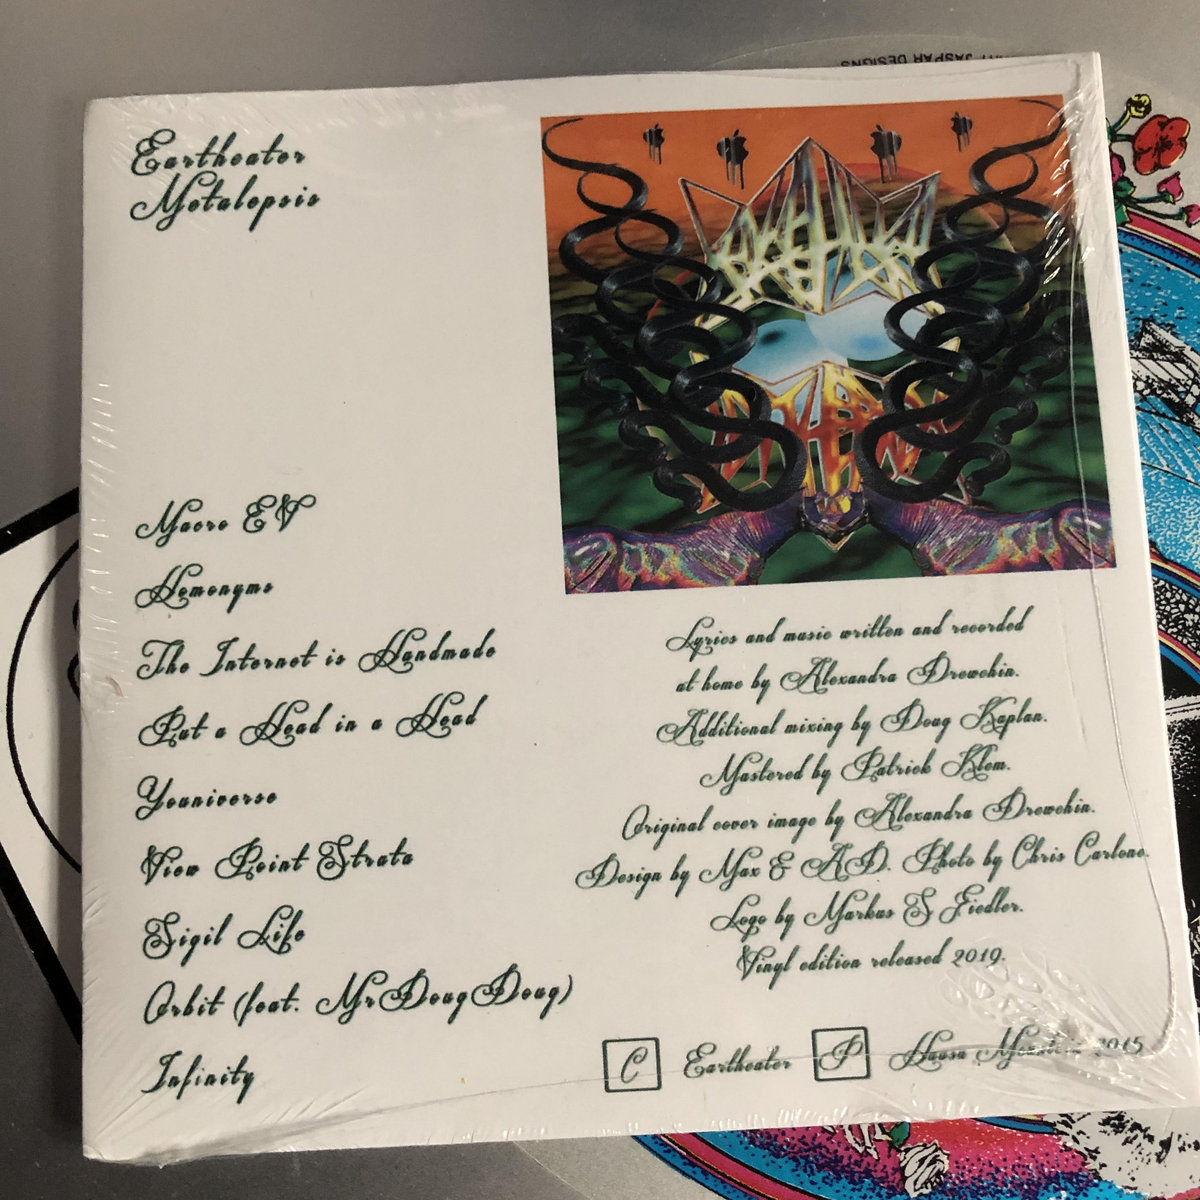 JASPAR DESIGNS
Eartheater
Metalepsis
Macro EV
Homonyms
The Internet is Handmade
Put a Head in a Head
Youniverse
View Point Strata
Sigil Life
Orbit (feat. MrDougDoug)
Infinity
Lyrics and music written and recorded
at home by Alexandra Drewchin.
Additional mixing by Doug Kaplan.
Mastered by Patrick Klem.
Original cover image by Alexandra Drewchin.
Design by Max & A.D. Photo by Chris Carlone.
Logo by Markus S Fiedler.
Vinyl edition released 2019.
C Eartheater P Hausu Mountain 2015